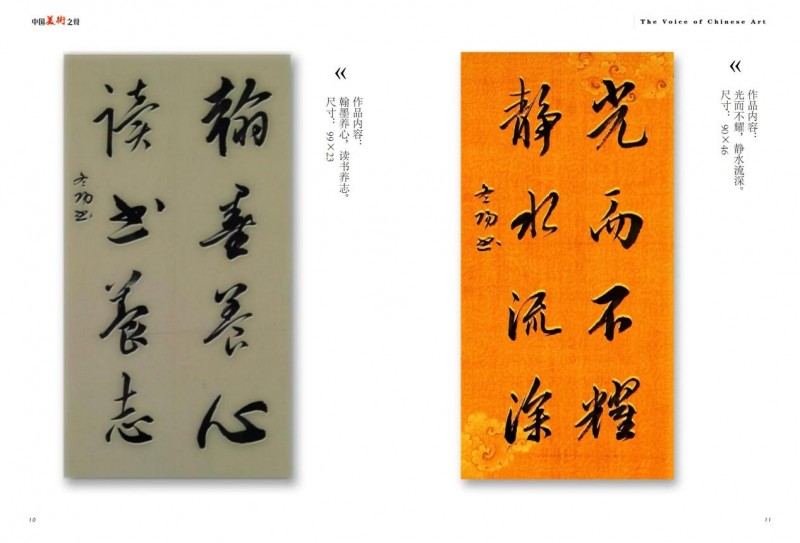 中国美術之声
The Voice of Chinese Art
翰墨養心
读书養志
作品内容：
翰墨养心，读书养志。
尺寸：99×23
光而不耀
静水流深
作品内容：
光而不耀，静水流深。
尺寸：90×46
10
11